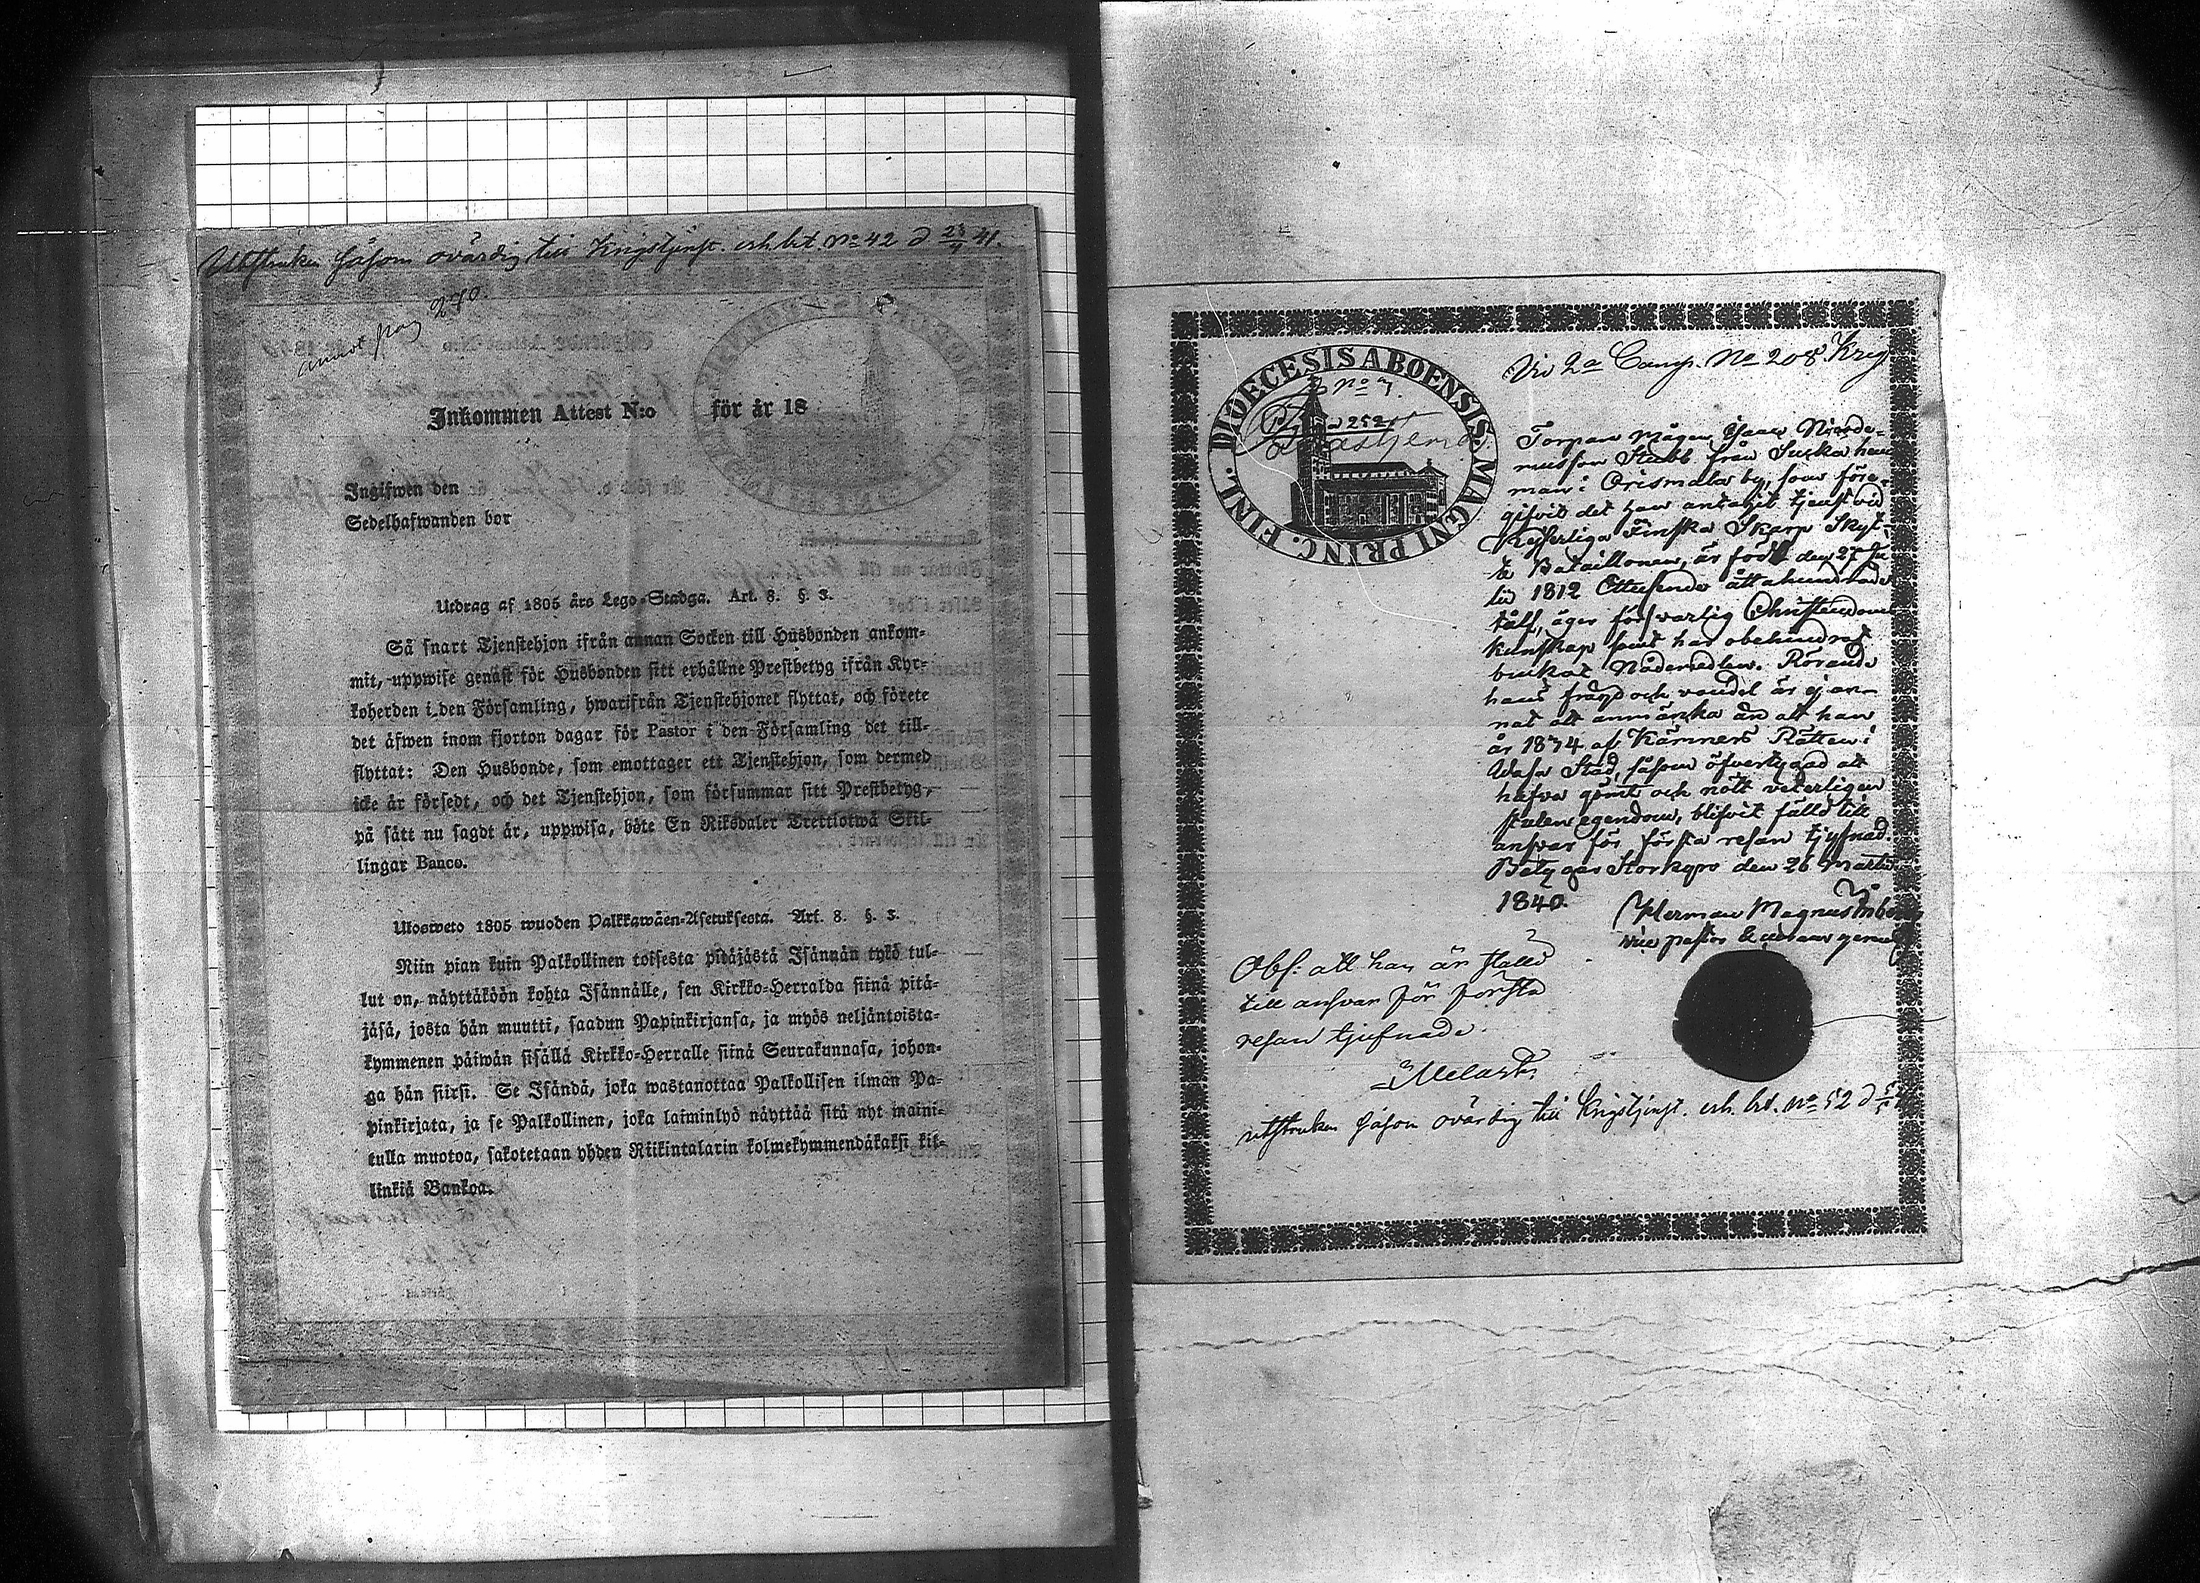 Utstruken såsom ovärdig till Krigstjenst. enl. bref. No 42 d 23/4 41.
annot pag 280.
Inkommen Attest N:o för år 18
Ingifwen den
Sedelhafwanden bor
Utdrag af 1805 års Lego-Stadga. Art. 8. §. 3.
Så snart Tjenstehjon ifrån annan Socken till Husbonden ankom-
mit, uppwise genast för Husbonden sitt erhållne Prestbetyg ifrån Kyr-
koherden i den Församling, hwarifrån Tjenstehjonet flyttat, och förete
det äfwen inom fjorton dagar för Pastor i den Församling det till-
flyttat: Den Husbonde, som emottager ett Tjenstehjon, som dermed
icke är försedt, och det Tjenstehjon, som försummar sitt Prestbetyg,
på sätt nu sagdt är, uppwisa, böte En Riksdaler Trettiotwå Skil-
lingar Banco.
Ulosweto 1805 wuoden Palkkawäen-Asetuksesta. Art. 8. §. 3.
Niin pian kuin Palkollinen toisesta pitäjästä Isännän tykö tul-
lut on, näyttäköön kohta Isännälle, sen Kirkko-Herralda siinä pitä-
jäsä, josta hän muutti, saadun Papinkirjansa, ja myös neljäntoista-
kymmenen päiwän sisällä Kirkko-Herralle siinä Seurakunnasa, johon-
ga hän siirsi. Se Isändä, joka wastanottaa Palkollisen ilman Pa-
pinkirjata, ja se Palkollinen, joka laiminlyö näyttää sitä nyt maini-
tulla muotoa, sakotetaan yhden Riikintalarin kolmekymmendäkaksi kil-
linkiä Bankoa.
DIOECESIS ABOENSIS MAGNI PRINC. FINL.
No 7.
252
Vid 2a Comp. No 208. Krig
Torpare mågen Isaac Nicode-
musson Stubb från Sucka hem
man i Orismala by, som före-
gifvit det han antagit tjenst vid
Kejserliga Finska Skarp Skyt-
te Bataillonen, är född den 27 Ju
lii 1812 Ettusende åttahundrade
tålf, äger försvarlig Christendoms
kunskap samt har obehindrat
brukat Nådemedlen. Rörande
hans frägd och vandel är ej an-
nat att anmärka än att han
år 1834 af Kämners Rätten i
Wasa Stad, såsom öfvertygad att
hafva gömt och nött veterligen
stulen egendom, blifvit fälld till
ansvar för första resan tjufnad.
Betygar Storkyro den 26 Martii
1840.
Herman Magnus
vice pastor
Obs: att han är fälld
till ansvar för första
resan tjufnade.
utstruken såsom ovärdig till Krigstjenst. enl. bref. No 52 d